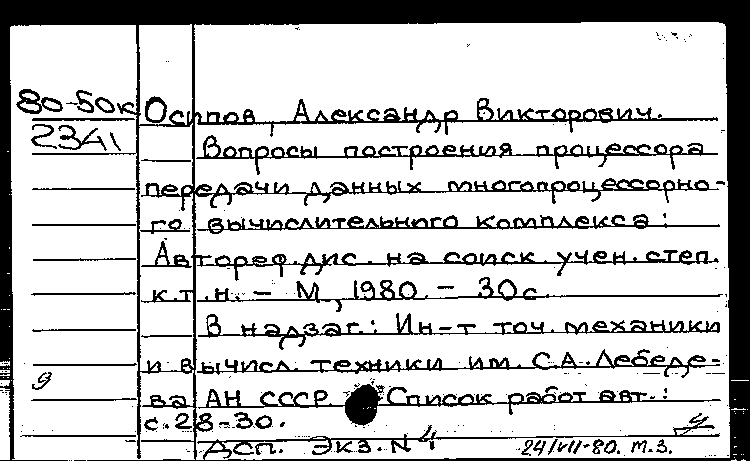 80-50к Осипов, Александр Викторович.
2341
Вопросы построения процессора
передачи данных многопроцессорно-
го вычислительного комплекса:
Автореф. дис. на соиск. учен. степ.
к.т.н. - М, 1980. - 30с.
В надзаг.: Ин-т точ. механики
и вычисл. техники им. С.А. Лебеде-
9
ва АН СССР Список работ авт.:
с. 28-30.
ДСП. ЭКЗ. N 4
24/VII-80. т.з.